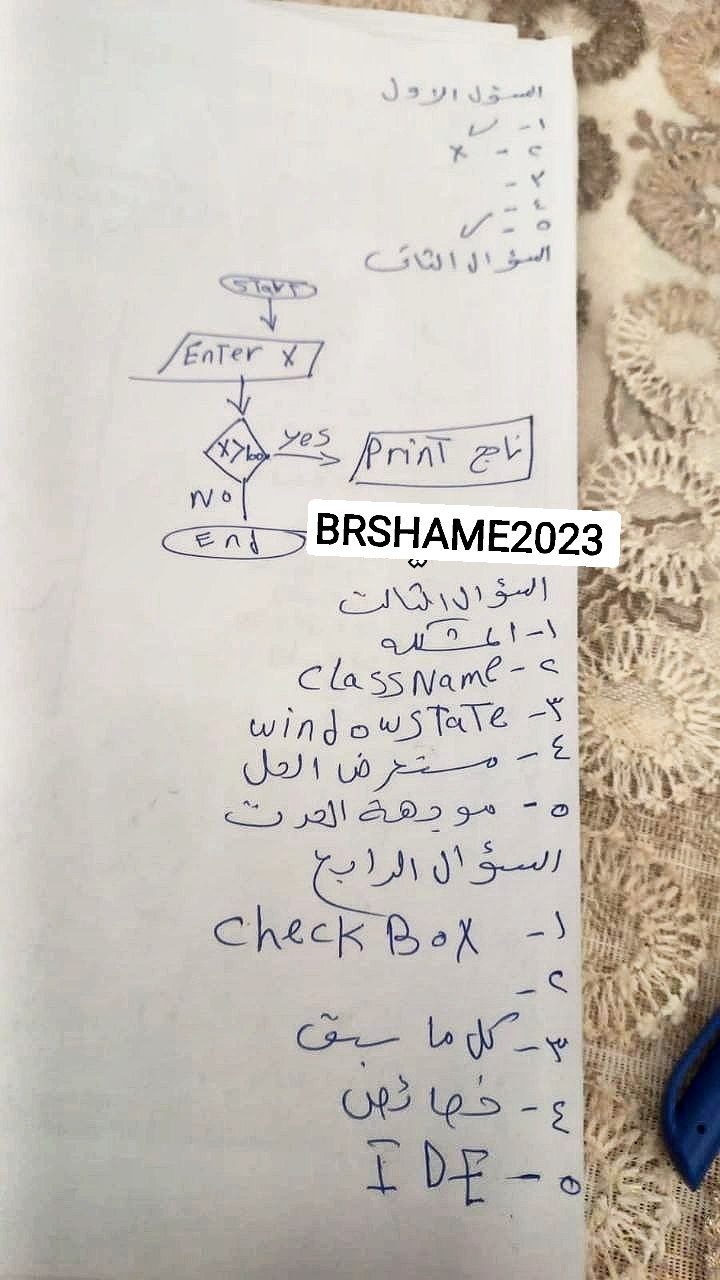 السؤل الاول
١- ✓
٢- x
٣-
٤-
٥- ✓
السؤال الثانى
START
Enter x
x>60 yes Print ناجح
No
End
BRSHAME2023
السؤال الثالث
١- المشكله
٢- className
٣- windowstate
٤- مستعرض الحل
٥- موجهة الحدث
السؤال الرابع
١- check Box
٢-
٣- كل ما سبق
٤- خصائص
٥- IDE